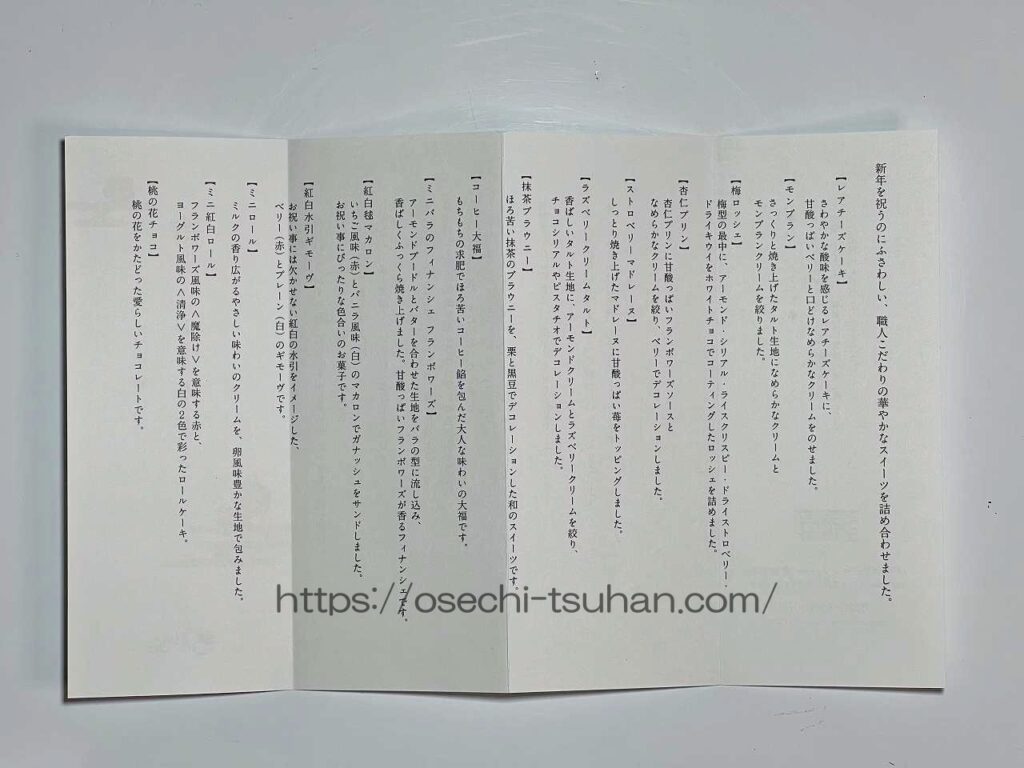 新年を祝うのにふさわしい、職人こだわりの華やかなスイーツを詰め合わせました。
【レアチーズケーキ】
さわやかな酸味を感じるレアチーズケーキに、
甘酸っぱいベリーと口どけなめらかなクリームをのせました。
【モンブラン】
さっくりと焼き上げたタルト生地になめらかなクリームと
モンブランクリームを絞りました。
【梅ロッシェ】
梅型の最中に、アーモンド・シリアル・ライスクリスピー・ドライストロベリー・
ドライキウイをホワイトチョコでコーティングしたロッシェを詰めました。
【杏仁プリン】
杏仁プリンに甘酸っぱいフランボワーズソースと
なめらかなクリームを絞り、ベリーでデコレーションしました。
【ストロベリーマドレーヌ】
しっとり焼き上げたマドレーヌに甘酸っぱい苺をトッピングしました。
【ラズベリークリームタルト】
香ばしいタルト生地に、アーモンドクリームとラズベリークリームを絞り、
チョコシリアルやピスタチオでデコレーションしました。
【抹茶ブラウニー】
ほろ苦い抹茶のブラウニーを、栗と黒豆でデコレーションした和のスイーツです。
【コーヒー大福】
もちもちの求肥でほろ苦いコーヒー餡を包んだ大人な味わいの大福です。
【ミニバラのフィナンシェ フランボワーズ】
アーモンドプードルとバターを合わせた生地をバラの型に流し込み、
香ばしくふっくら焼き上げました。甘酸っぱいフランボワーズが香るフィナンシェです。
【紅白毬マカロン】
いちご風味（赤）とバニラ風味（白）のマカロンでガナッシュをサンドしました。
お祝い事にぴったりな色合いのお菓子です。
【紅白水引ギモーヴ】
お祝い事には欠かせない紅白の水引をイメージした、
ベリー（赤）とプレーン（白）のギモーヴです。
【ミニロール】
ミルクの香り広がるやさしい味わいのクリームを、卵風味豊かな生地で包みました。
【ミニ紅白ロール】
フランボワーズ風味の＜魔除け＞を意味する赤と、
ヨーグルト風味の＜清浄＞を意味する白の2色で彩ったロールケーキ。
【桃の花チョコ】
桃の花をかたどった愛らしいチョコレートです。
https://osechi-tsuhan.com/